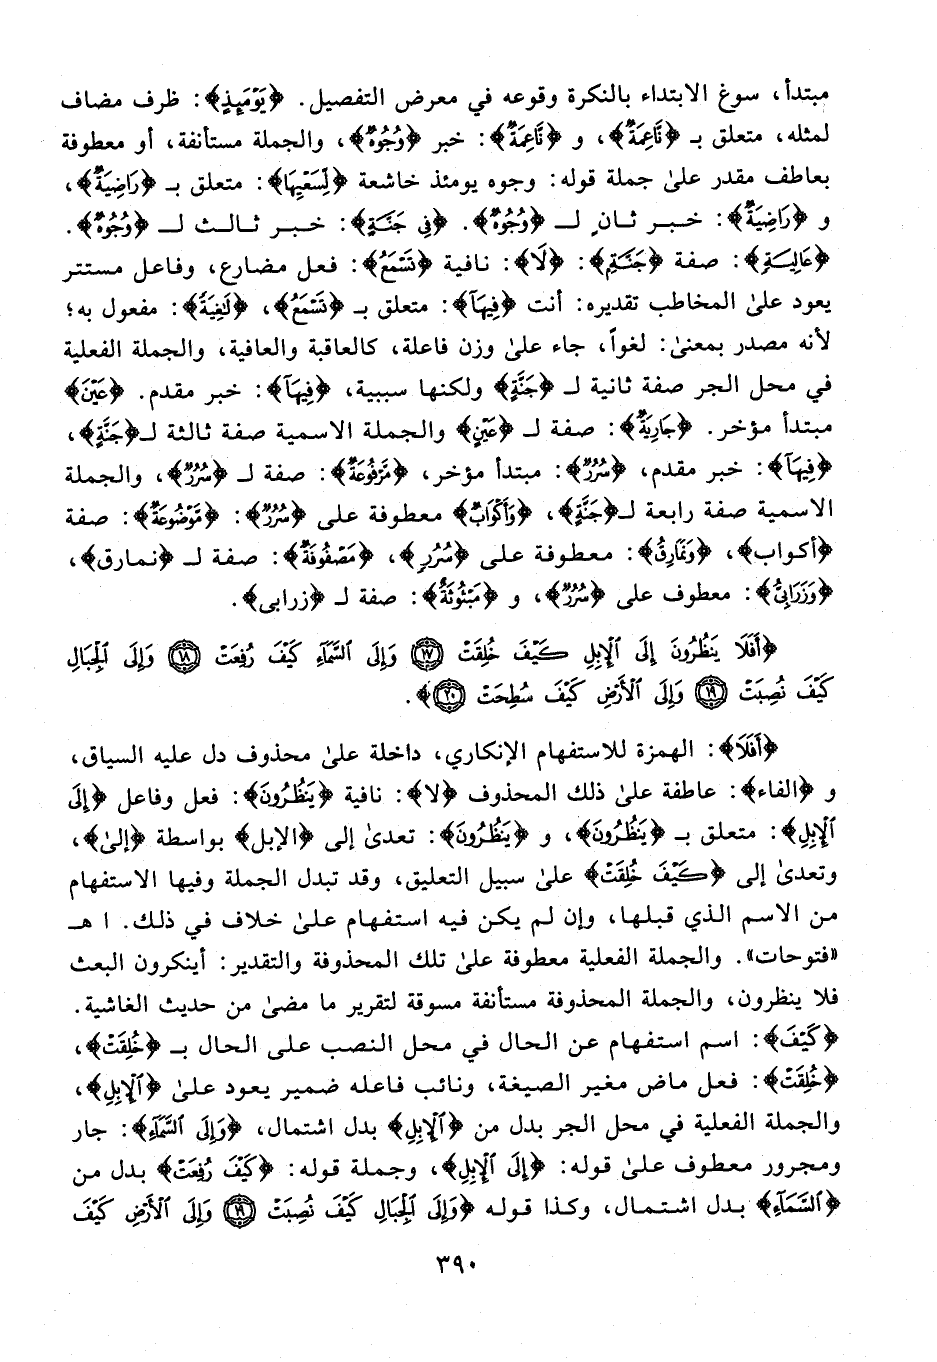 مبتدأ، سوغ الابتداء بالنكرة وقوعه في معرض التفصيل. ﴿يَوْمَئِذٍ﴾: ظرف مضاف
لمثله، متعلق بـ ﴿نَّاعِمَةٌ﴾، و ﴿نَّاعِمَةٌ﴾: خبر ﴿وُجُوهٌ﴾، والجملة مستأنفة، أو معطوفة
بعاطف مقدر علىٰ جملة قوله: وجوه يومئذ خاشعة ﴿لِسَعْيِهَا﴾: متعلق بـ ﴿رَاضِيَةٌ﴾،
و ﴿رَاضِيَةٌ﴾: خبر ثانٍ لـ ﴿وُجُوهٌ﴾. ﴿فِي جَنَّةٍ﴾: خبر ثالث لـ ﴿وُجُوهٌ﴾.
﴿عَالِيَةٍ﴾: صفة ﴿جَنَّةٍ﴾: ﴿لَا﴾: نافية ﴿تَسْمَعُ﴾: فعل مضارع، وفاعل مستتر
يعود علىٰ المخاطب تقديره: أنت ﴿فِيهَآ﴾: متعلق بـ ﴿تَسْمَعُ﴾، ﴿لَٰغِيَةً﴾: مفعول به؛
لأنه مصدر بمعنىٰ: لغواً، جاء علىٰ وزن فاعلة، كالعاقبة والعافية، والجملة الفعلية
في محل الجر صفة ثانية لـ ﴿جَنَّةٍ﴾ ولكنها سببية، ﴿فِيهَآ﴾: خبر مقدم. ﴿عَيْنَ﴾
مبتدأ مؤخر. ﴿جَارِيَةٌ﴾: صفة لـ ﴿عَيْنٍ﴾ والجملة الاسمية صفة ثالثة لـ﴿جَنَّةٍ﴾،
﴿فِيهَآ﴾: خبر مقدم، ﴿سُرُرٌ﴾: مبتدأ مؤخر، ﴿مَّرْفُوعَةٌ﴾: صفة لـ ﴿سُرُرٌ﴾، والجملة
الاسمية صفة رابعة لـ﴿جَنَّةٍ﴾، ﴿وَأَكْوَابٌ﴾ معطوفة على ﴿سُرُرٌ﴾: ﴿مَّوْضُوعَةٌ﴾: صفة
﴿أكواب﴾، ﴿وَنَمَارِقُ﴾: معطوفة على ﴿سُرُرٍ﴾، ﴿مَصْفُوفَةٌ﴾: صفة لـ ﴿نمارق﴾،
﴿وَزَرَابِيُّ﴾: معطوف على ﴿سُرُرٌ﴾، و ﴿مَبْثُوثَةٌ﴾: صفة لـ ﴿زرابي﴾.
﴿أَفَلَا يَنظُرُونَ إِلَى ٱلْإِبِلِ كَيْفَ خُلِقَتْ ١٧ وَإِلَى ٱلسَّمَآءِ كَيْفَ رُفِعَتْ ١٨ وَإِلَى ٱلْجِبَالِ
كَيْفَ نُصِبَتْ ١٩ وَإِلَى ٱلْأَرْضِ كَيْفَ سُطِحَتْ ٢٠﴾.
﴿أَفَلَا﴾: الهمزة للاستفهام الإنكاري، داخلة علىٰ محذوف دل عليه السياق،
و ﴿الفاء﴾: عاطفة علىٰ ذلك المحذوف ﴿لا﴾: نافية ﴿يَنظُرُونَ﴾: فعل وفاعل ﴿إِلَى
ٱلْإِبِلِ﴾: متعلق بـ ﴿يَنظُرُونَ﴾، و ﴿يَنظُرُونَ﴾: تعدىٰ إلى ﴿الإبل﴾ بواسطة ﴿إلىٰ﴾،
وتعدىٰ إلى ﴿كَيْفَ خُلِقَتْ﴾ علىٰ سبيل التعليق، وقد تبدل الجملة وفيها الاستفهام
من الاسم الذي قبلها، وإن لم يكن فيه استفهام علىٰ خلاف في ذلك. ا هـ
«فتوحات». والجملة الفعلية معطوفة علىٰ تلك المحذوفة والتقدير: أينكرون البعث
فلا ينظرون، والجملة المحذوفة مستأنفة مسوقة لتقرير ما مضىٰ من حديث الغاشية.
﴿كَيْفَ﴾: اسم استفهام عن الحال في محل النصب على الحال بـ ﴿خُلِقَتْ﴾،
﴿خُلِقَتْ﴾: فعل ماض مغير الصيغة، ونائب فاعله ضمير يعود علىٰ ﴿ٱلْإِبِلِ﴾،
والجملة الفعلية في محل الجر بدل من ﴿ٱلْإِبِلِ﴾ بدل اشتمال، ﴿وَإِلَى ٱلسَّمَآءِ﴾: جار
ومجرور معطوف علىٰ قوله: ﴿إِلَى ٱلْإِبِلِ﴾، وجملة قوله: ﴿كَيْفَ رُفِعَتْ﴾ بدل من
﴿ٱلسَّمَآءِ﴾ بدل اشتمال، وكذا قوله ﴿وَإِلَى ٱلْجِبَالِ كَيْفَ نُصِبَتْ ١٩ وَإِلَى ٱلْأَرْضِ كَيْفَ
٣٩٠